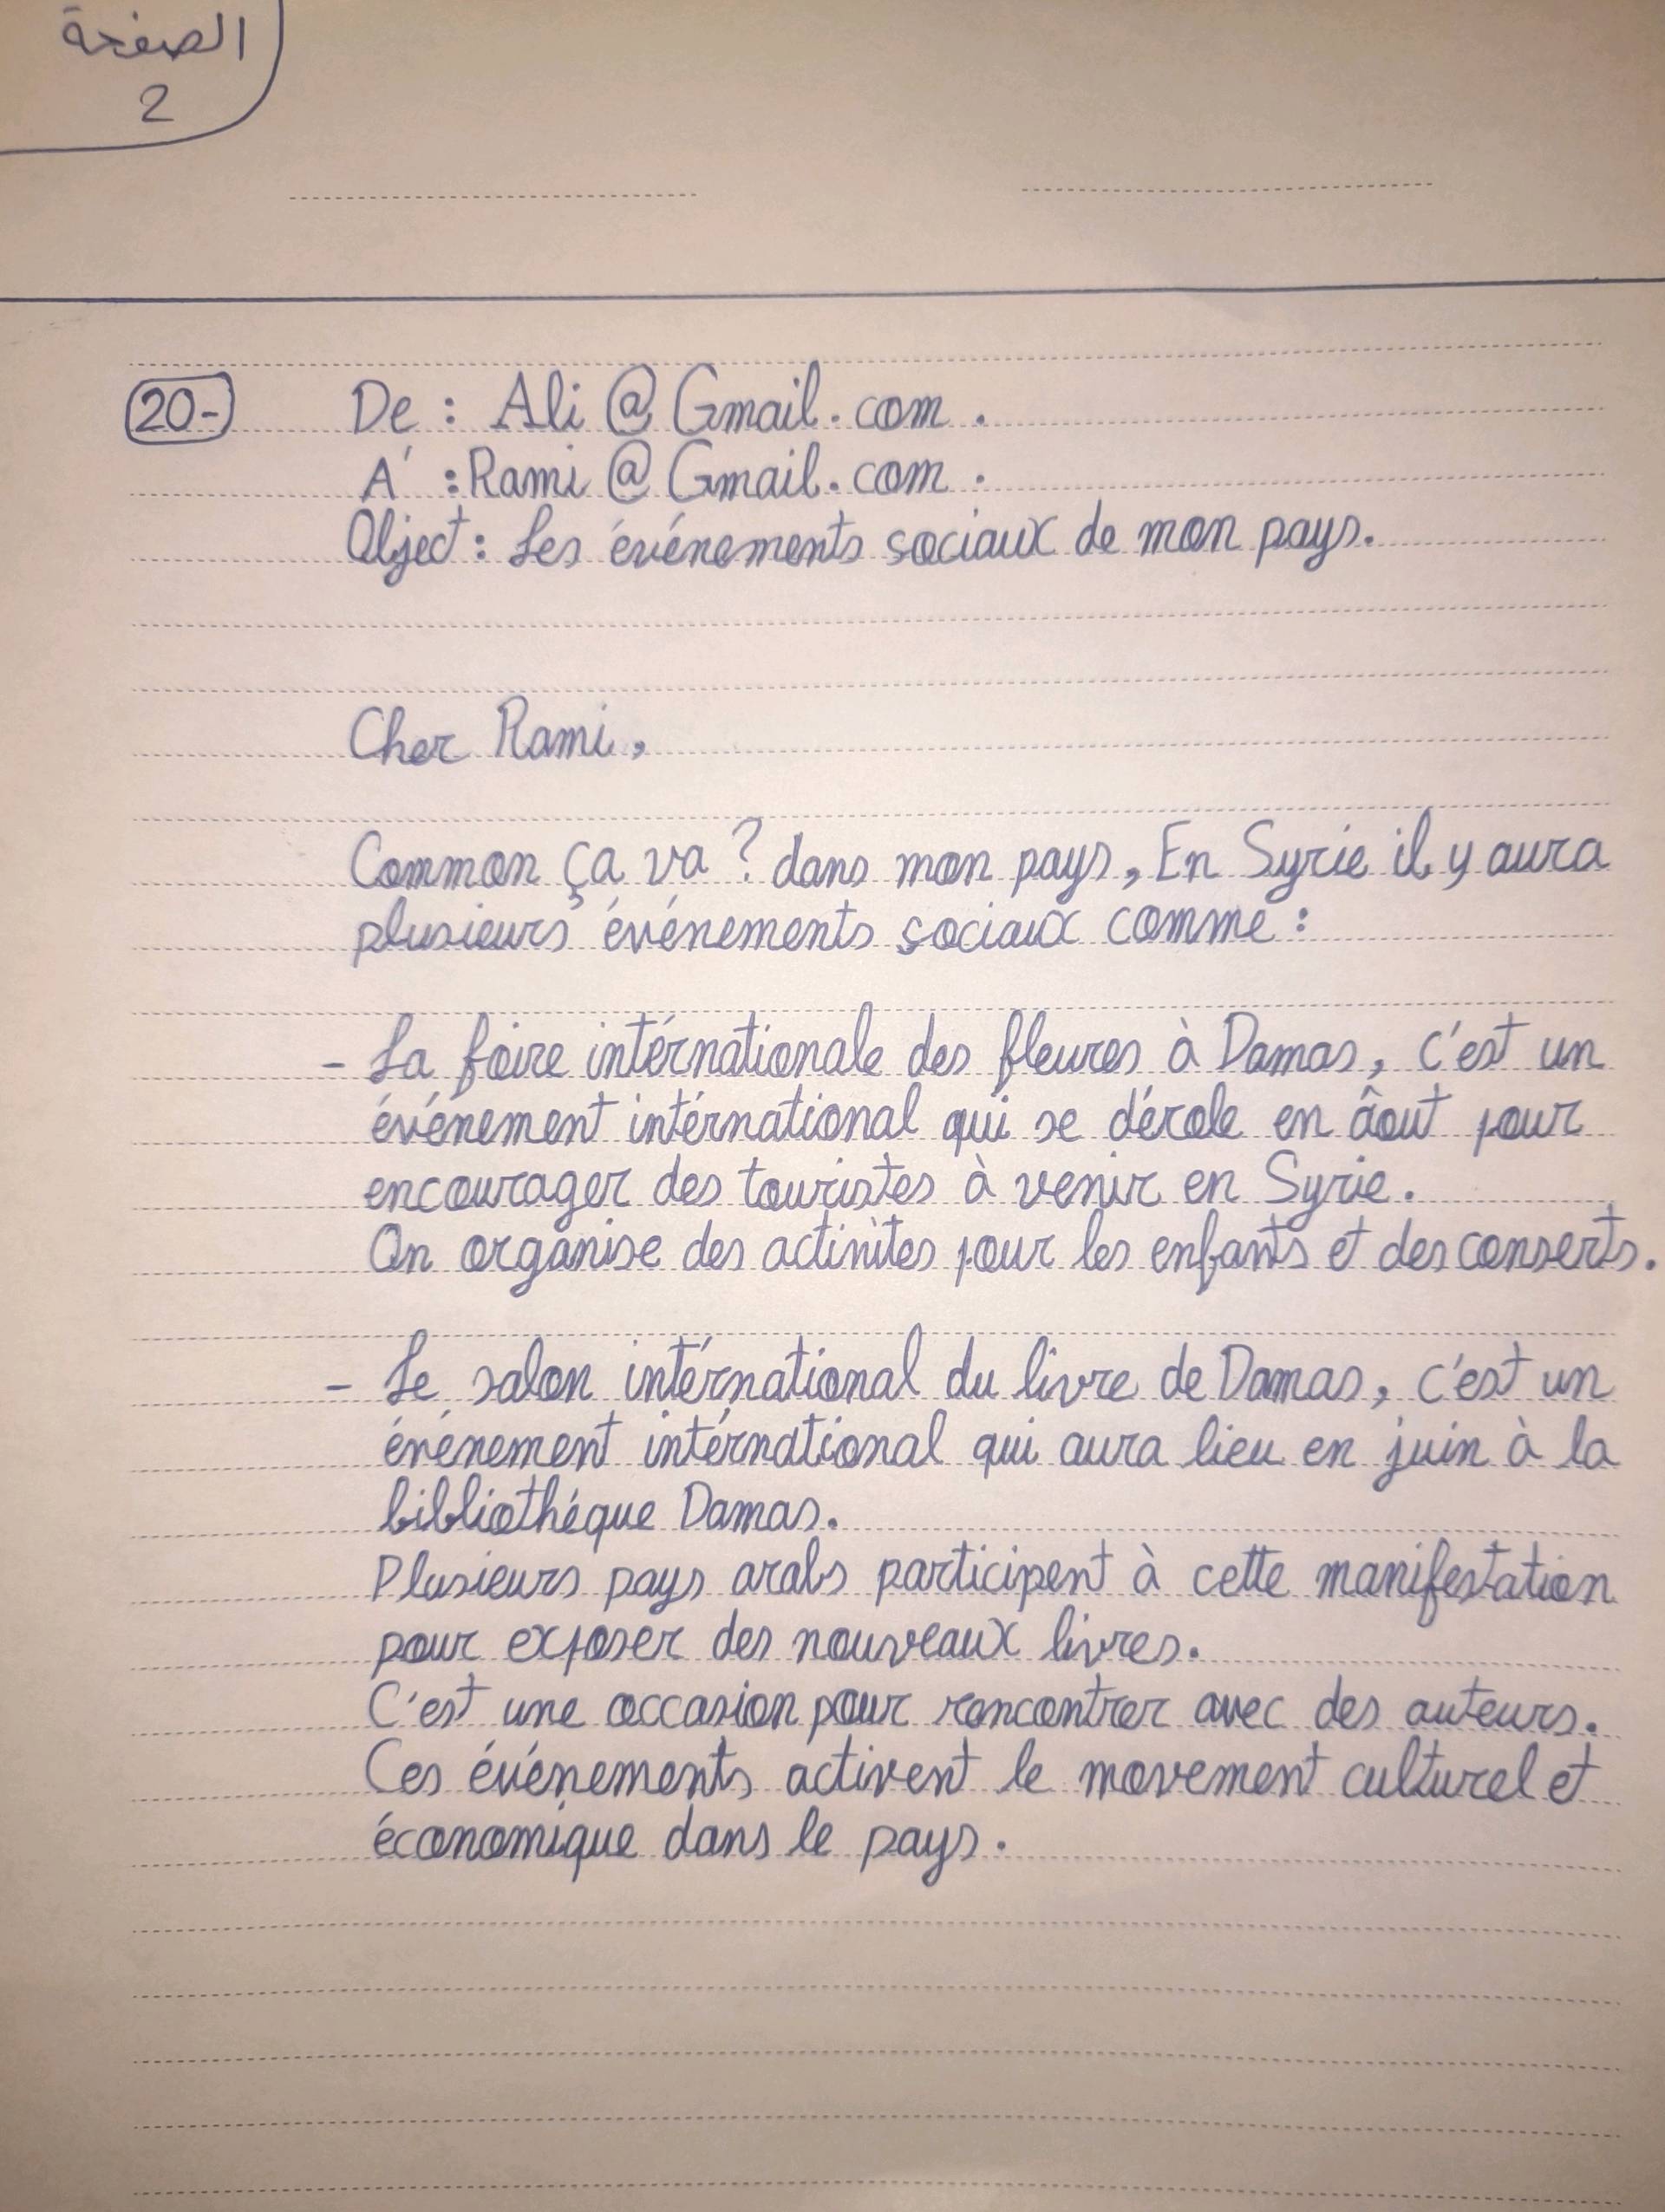 الصفحة
2
20-
De : Ali @ Gmail.com .
A' : Rami @ Gmail.com .
Object : Les événements sociaux de mon pays.
Cher Rami,
Common ça va ? dans mon pays, En Syrie il y aura
plusieurs événements sociaux comme :
- La foire intérnationale des fleures à Damas, c'est un
événement intérnational qui se dérole en âout pour
encourager des touristes à venir en Syrie.
On organise des activites pour les enfants et des conserts.
- Le salon intérnational du livre de Damas, c'est un
événement intérnational qui aura lieu en juin à la
bibliothéque Damas.
Plusieurs pays arabs participent à cette manifestation
pour exposer des nouveaux livres.
C'est une occasion pour rencontrer avec des auteurs.
Ces événements activent le movement culturel et
économique dans le pays.